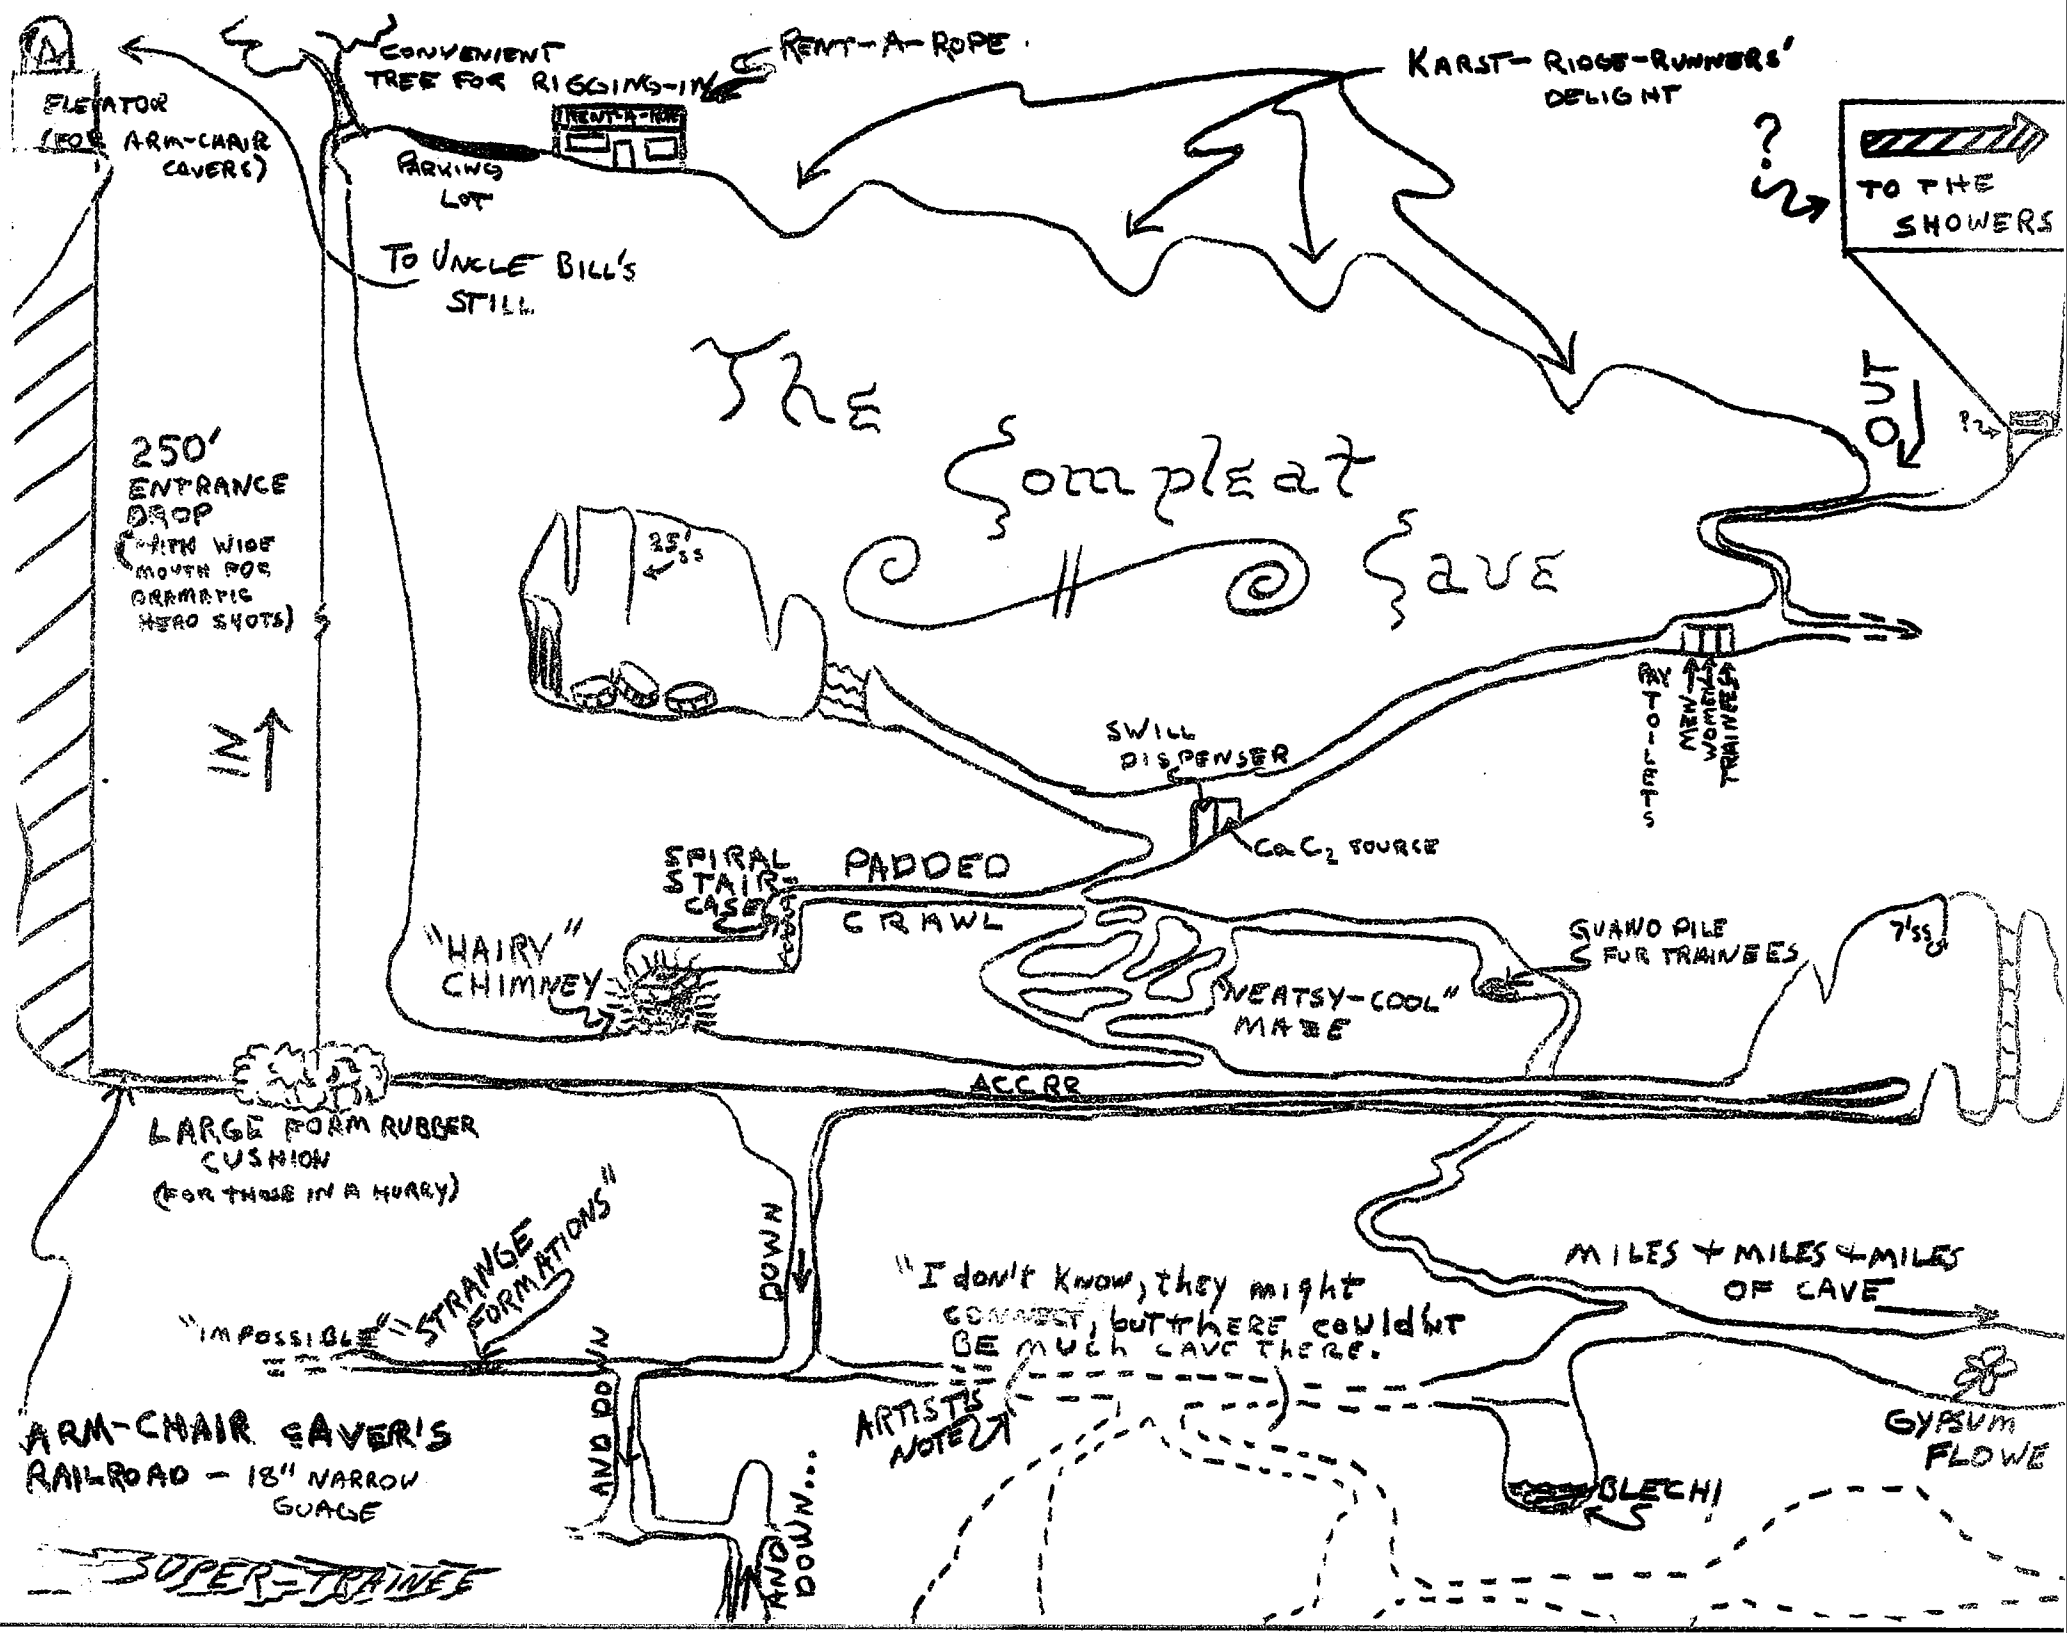 ELEVATOR
(FOR ARM-CHAIR
CAVERS)
CONVENIENT
TREE FOR RIGGING-IN
RENT-A-ROPE
RENT-A-ROPE
PARKING
LOT
TO UNCLE BILL'S
STILL
KARST-RIDGE-RUNNERS'
DELIGHT
?
TO THE
SHOWERS
OUT
THE
COMPLEAT
CAVE
250'
ENTRANCE
DROP
(WITH WIDE
MOUTH FOR
DRAMATIC
HERO SHOTS)
IN
25'
SS
PAY TOILETS
MEN
WOMEN
TRAINEES
SWILL
DISPENSER
CaC2 SOURCE
SPIRAL
STAIR-
CASE
PADDED
CRAWL
"HAIRY"
CHIMNEY
"NEATSY-COOL"
MAZE
GUANO PILE
FUR TRAINEES
7'SS
ACCRR
LARGE FORM RUBBER
CUSHION
(FOR THOSE IN A HURRY)
DOWN
"STRANGE
FORMATIONS"
"IMPOSSIBLE"
AND DOWN
AND
DOWN...
"I don't know, they might
connect, but there couldn't
be much cave there.
ARTISTS
NOTE
MILES + MILES + MILES
OF CAVE
GYPSUM
FLOWE
BLECH!
ARM-CHAIR CAVER'S
RAILROAD - 18" NARROW
GUAGE
SUPER-TRAINEE